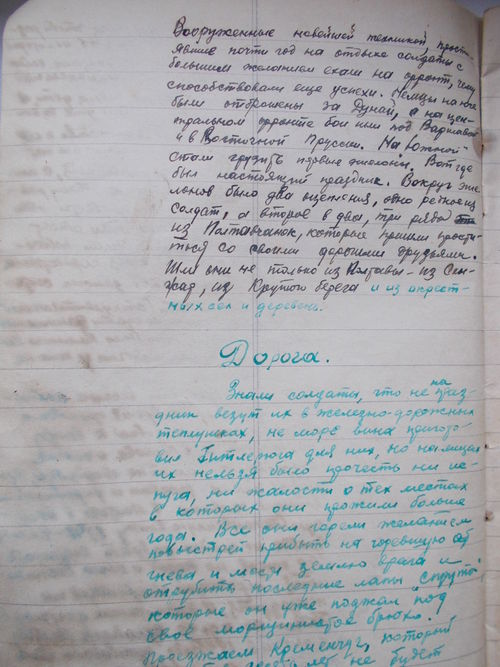 Вооруженные новейшей техникой, прост-
явшие почти год на отдыхе солдаты с
большим желанием ехали на фронт, чему
способствовали еще успехи. Немцы на юге
были отброшены за Дунай, а на цен-
тральном фронте бои шли под Варшавой
и в Восточной Пруссии. На Южной
стали грузить первые эшелоны. Вот где
был настоящий праздник. Вокруг эше
лонов было два оцепления, одно редкое из
солдат, а второе в два, три ряда
из Полтавчанок, которые пришли прости-
ться со своими дорогими друзьями.
Шли они не только из Полтавы - из Сен-
жар, из Крутого берега и из окрест-
ных сел и деревень.
Дорога.
Знали солдаты, что не на праз
дник везут их в железно-дорожных
теплушках, не море вина пригото-
вил Гитлерюга для них, но на лицах
их нельзя было прочесть ни ис-
пуга, ни жалости о тех местах
в которых они прожили больше
года. Все они горели желанием
побыстрей прибыть на горевшую от
гнева и мести землю врага и
отрубить последние лапы "спрута"
которые он уже поджал под
свое морщинистое брюхо.
Проезжаем Кременчуг, который
лет не будет